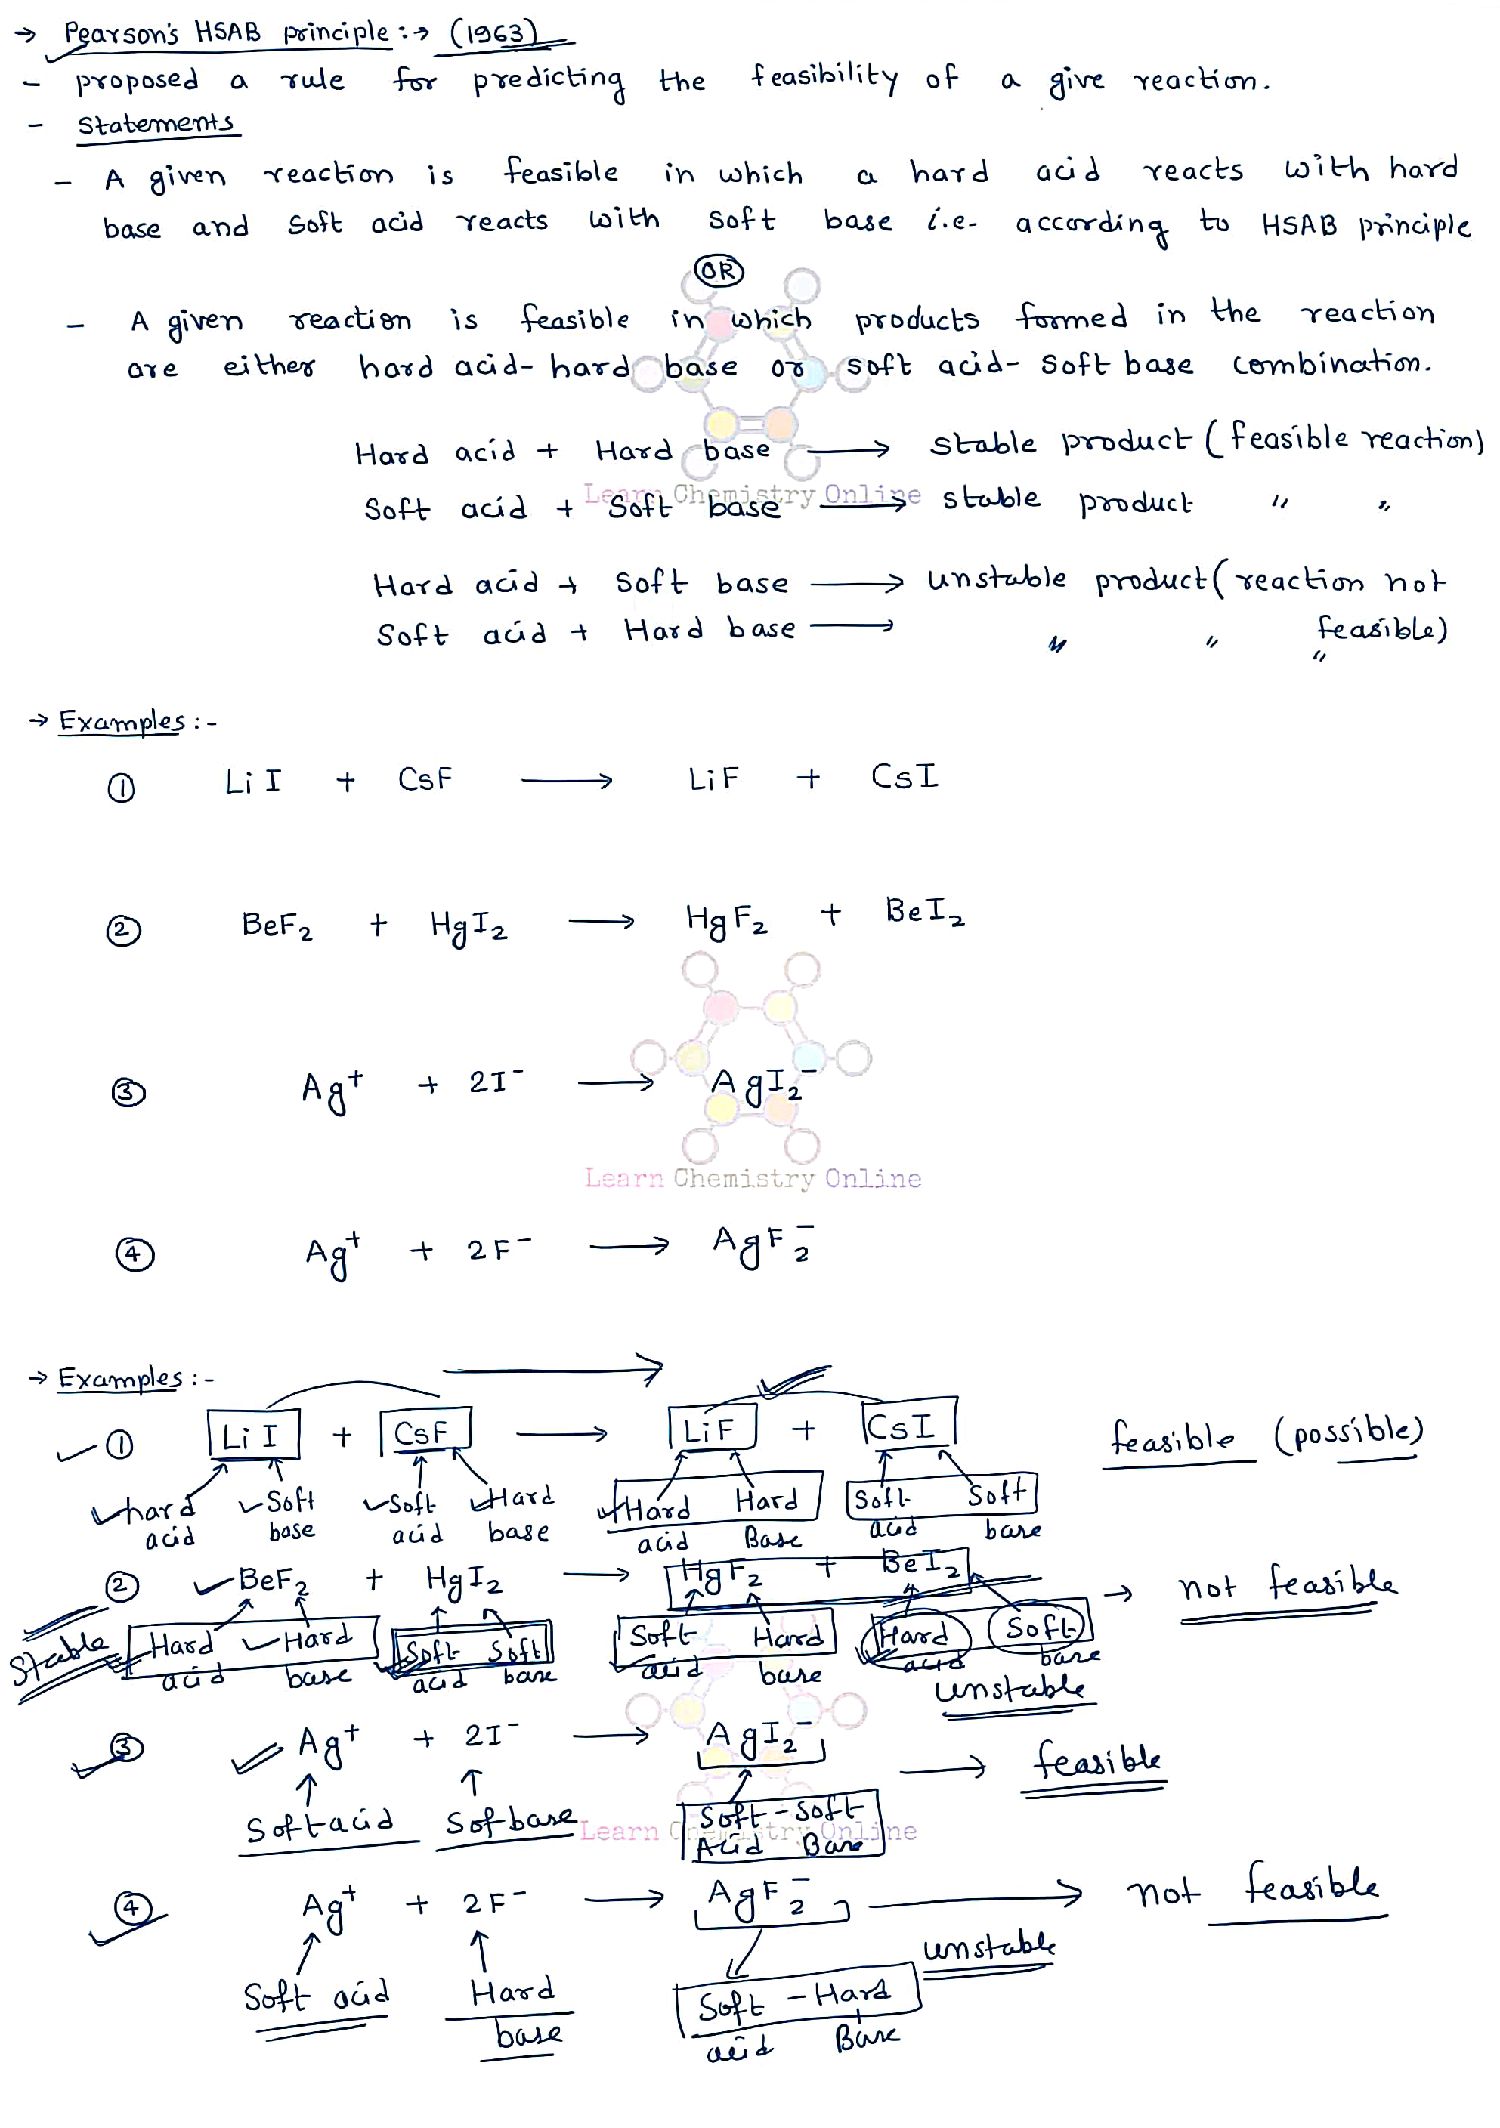 → Pearson's HSAB principle :→ (1963)
- proposed a rule for predicting the feasibility of a give reaction.
- Statements
- A given reaction is feasible in which a hard acid reacts with hard
base and soft acid reacts with soft base i.e. according to HSAB principle
OR
- A given reaction is feasible in which products formed in the reaction
are either hard acid - hard base or soft acid - soft base combination.
Hard acid + Hard base ⟶ stable product (feasible reaction)
Learn Chemistry Online
Soft acid + Soft base ⟶ stable product " "
Hard acid + Soft base ⟶ unstable product (reaction not
feasible)
Soft acid + Hard base ⟶ " " "
→ Examples :-
① LiI + CsF ⟶ LiF + CsI
② BeF₂ + HgI₂ ⟶ HgF₂ + BeI₂
③ Ag⁺ + 2I⁻ ⟶ AgI₂⁻
Learn Chemistry Online
④ Ag⁺ + 2F⁻ ⟶ AgF₂⁻
→ Examples :-
① LiI + CsF ⟶ LiF + CsI feasible (possible)
hard Soft Soft Hard Hard Hard Soft Soft
acid base acid base acid Base acid base
② BeF₂ + HgI₂ ⟶ HgF₂ + BeI₂ → not feasible
Stable Hard Hard Soft Soft Soft Hard Hard Soft
acid base acid base acid base acid base
unstable
③ Ag⁺ + 2I⁻ ⟶ AgI₂⁻ ⟶ feasible
Soft acid Sof base Soft - Soft
Learn Chemistry Online
Acid Base
④ Ag⁺ + 2F⁻ ⟶ AgF₂⁻ ⟶ not feasible
unstable
Soft acid Hard Soft - Hard
base acid Base